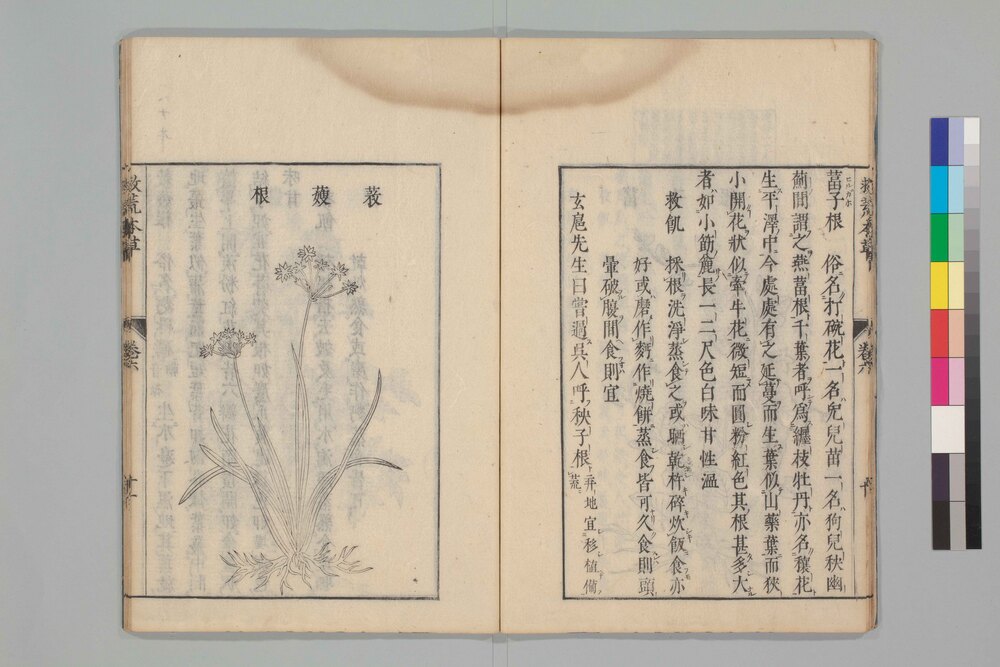 救荒本草
卷六
葍子根 俗名打碗花一名兔兒苗一名狗兒秧幽
薊間謂之燕葍根千葉者呼爲纏枝牡丹亦名穰花
生平澤中今處處有之延蔓而生葉似山藥葉而狹
小開花狀似牽牛花微短而圓粉紅色其根甚多大
者如小筯麄長一二尺色白味甘性溫
救飢 採根洗淨蒸食之或晒乾杵碎炊飯食亦
好或磨作麪作燒餅蒸食皆可久食則頭
暈破腹間食則宜
玄扈先生曰嘗過吳人呼秧子根 地宜移植備荒
救荒本草
卷六
菽
蔢
根